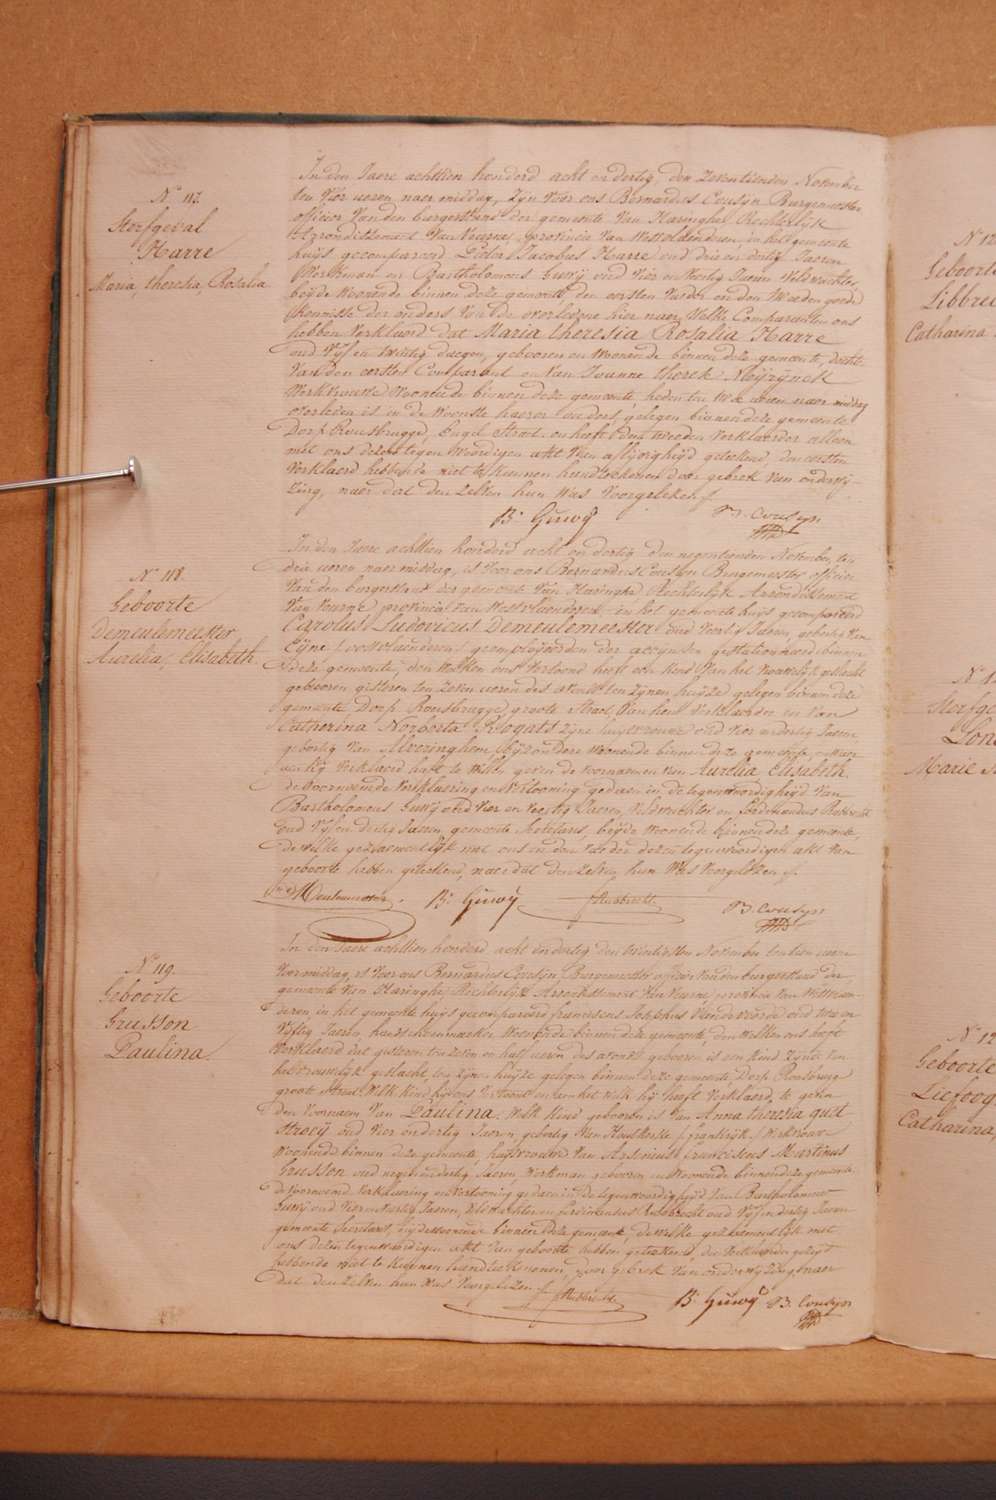 N° 117.
Sterfgeval
Harre
Maria, theresia, Rosalia
In den Jaere achttien honderd acht en dertig den Zeventienden November
ten Vier ueren naer middag, Zyn Voor ons Bernardus Cousyn Burgemeester
officier Van den burgerstand der gemeente Van Haringhe Rechterlyk
Arrondissement Van Veurne, provincie Van Westvlaenderen, in het gemeente
huys gecompareerd Pieter Jacobus Harre oud drie en dertig Jaeren
Werkman en Bartholomeus Guwÿ oud Vier en Veertig Jaeren Veldwachter
beyde Woonende binnen deze gemeente den eersten Vader en den tweeden goede
kennisse der ouders Van de overledene hier naer, Welke Comparanten ons
hebben Verklaerd dat Maria theresia Rosalia Harre
oud Vyf en twintig daegen, gebooren en Woonende binnen deze gemeente, dochter
Van den eersten Comparant en Van Joanne therese Meÿrÿnck
Werkvrouwe Woonende binnen deze gemeente, heden ten twee ueren naer middag
overleden is in de Woonste haerer ouders, gelegen binnen deze gemeente
Dorp Rousbrugge, Engel Straet, en heeft den tweeden Verklaerder alleen
met ons dezen tegenwoordigen akt Van aflyvigheyd geteekend, den eersten
Verklaerd hebbende niet te kunnen handteekenen door gebrek Van onderwy-
zing, naer dat den zelven hun Was Voorgelezen ./.
B: Guwÿ B. Cousyn
N° 118.
Geboorte
Demeulemeester
Aurelia, Elisabeth.
In den Jaere achttien honderd acht en dertig den negentienden November, ten
drie ueren naer middag, is Voor ons Bernardus Cousyn Burgemeester officier
Van den burgerstand der gemeente Van Haringhe Rechterlyk Arrondissement
Van Veurne, provincie Van Westvlaenderen in het gemeente huys gecompareerd
Carolus Ludovicus Demeulemeester oud Veertig Jaeren, geboortig Van
Eÿne (oostvlaenderen) geemployeerden der accynsen gestationneerd binnen
deze gemeente, den Welken ons Vertoond heeft een Kind Van het Vrouwelyk geslacht
gebooren gisteren ten Zeven ueren des avonds ten Zynen huyze gelegen binnen deze
gemeente Dorp Rousbrugge groote Straet, Van hem Verklaerder en Van
Catherina Norberta Rÿogats Zyne huysvrouwe oud Vier en dertig Jaeren
geboortig Van Alveringhem, byzondere Woonende binnen deze gemeente, Waer
aen hy Verklaerd heeft te Willen geven de Voornaemen Van Aurelia, Elisabeth,
de Voornoemde Verklaering en Vertooning gedaen in de tegenwoordigheyd Van
Bartholomeus Guwÿ oud Vier en Veertig Jaeren, Veldwachter en Ferdinandus Rubbrecht
oud Vyf en dertig Jaeren, gemeente Secretaris, beyde Woonende binnen deze gemeente,
de Welke gezaementlyk met ons en den Vader dezen tegenwoordigen akt Van
geboorte hebben geteekend, naer dat den zelven hun Was Voorgelezen ./.
DMeulemeester. B: Guwÿ FRubbrecht B. Cousyn
N° 119.
Geboorte
Grusson
Paulina.
In den Jaere achttien honderd acht en dertig den twintigsten November ten tien ueren
Voor middag, is Voor ons Bernardus Cousyn Burgemeester officier Van den burgerstand der
gemeente Van Haringhe, Rechterlyk Arrondissement Van Veurne, provincie Van Westvlaen-
deren, in het gemeente huys gecompareerd franciscus Josephus Vandevoorde oud twee en
Vyftig Jaeren, handschoenmaeker Woonende binnen deze gemeente, den Welken ons heeft
Verklaerd dat gisteren ten Zeven en half ueren des avonds gebooren is een Kind Zynde Van
het Vrouwelyk geslacht, ten Zynen huyze gelegen binnen deze gemeente, Dorp Rousbrugge
groote Straet, Welk Kind hy ons Vertoont en aen het Welk hy heeft Verklaerd te geven
den Voornaem Van Paulina. Welk Kind gebooren is Van Anna theresia quit
Strooÿ oud Vier en dertig Jaeren, geboortig Van Houtkerke (frankryk) Werkvrouw
Woonende binnen deze gemeente, huysvrouwe Van Arsenius Franciscus Martinus
Grusson oud negen en dertig Jaeren, Werkman gebooren en Woonende binnen deze gemeente.
de Voornoemde Verklaering en Vertooning gedaen in de tegenwoordigheyd Van Bartholomeus
Guwÿ oud Vier en Veertig Jaeren, Veldwachter en Ferdinandus Rubbrecht oud Vyf en dertig Jaeren
gemeente Secretaris, beyde Woonende binnen deze gemeente, de Welke gezaementlyk met
ons dezen tegenwoordigen akt Van geboorte hebben geteekend, den Verklaerder gezegt
hebbende niet te kunnen handteekenen, door gebrek Van onderwyzing, naer
dat den Zelven hun Was Voorgelezen ./.
FRubbrecht B: Guwÿ B. Cousyn
N° 12
Geboorte
Libbre
Catharina
Sterfge
Lon
Marie
N° 12
Geboorte
Liefoog
Catharina,